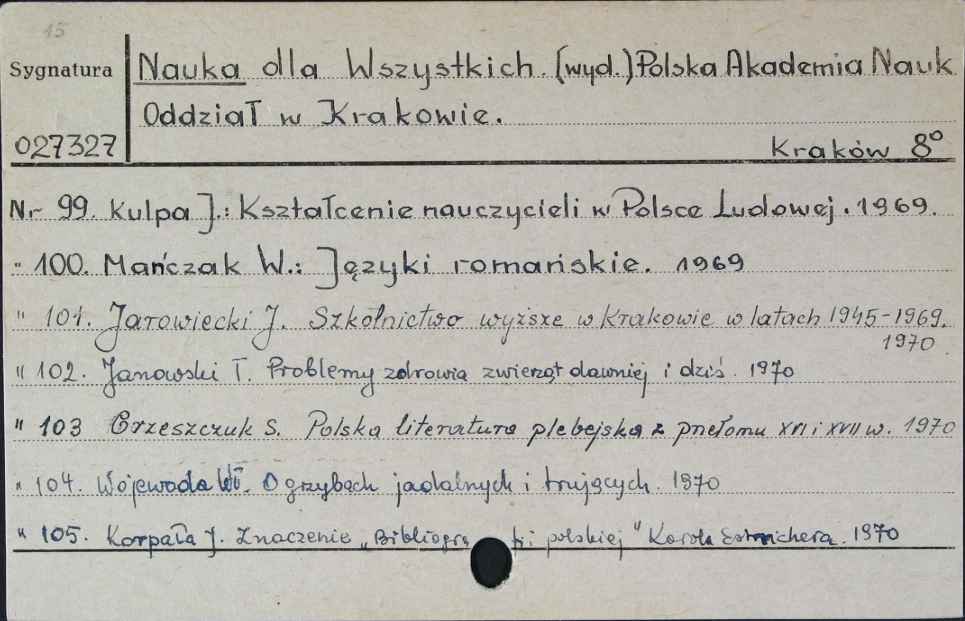 15
Sygnatura
Nauka dla Wszystkich. (wyd.) Polska Akademia Nauk
Oddział w Krakowie.
027327
Kraków 8°
Nr 99. Kulpa J.: Kształcenie nauczycieli w Polsce Ludowej. 1969.
" 100. Mańczak W.: Języki romańskie. 1969
" 101. Jarowiecki J. Szkolnictwo wyższe w Krakowie w latach 1945-1969.
1970
" 102. Janowski T. Problemy zdrowia zwierząt dawniej i dziś. 1970
" 103 Grzeszczuk S. Polska literatura plebejska z przełomu XVI i XVII w. 1970
" 104. Wojewoda Wł. O grzybach jadalnych i trujących. 1970
" 105. Korpała J. Znaczenie „Bibliogra fii polskiej" Karola Estreichera. 1970